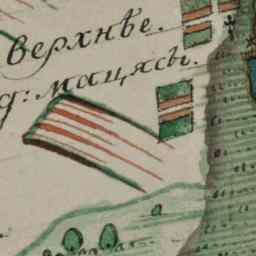 верхнѣе.
д: мацясы.